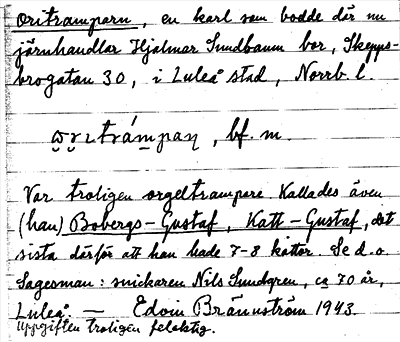 Oritramparn, en karl som bodde där nu
järnhandlar Hjalmar Sundbaum bor, Skepps-
brogatan 30, i Luleå stad, Norrb. l.
bf. m.
Var troligen orgeltrampare. Kallades även
(han) Bobergs-Gustaf, Katt-Gustaf, det
sista därför att han hade 7-8 kattor. Se d.o.
Sagesman: snickaren Nils Sundgren, ca 70 år,
Luleå. — Edvin Brännström 1943.
Uppgiften troligen felaktig.